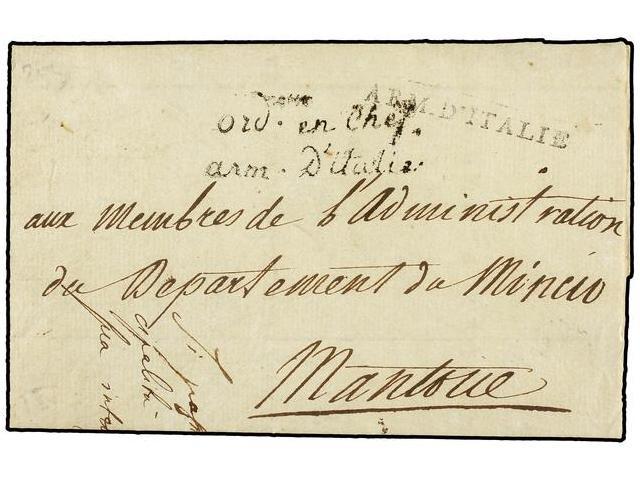 ARM. D'ITALIE
Ord. en Chef.
arm. D'Italie.
aux membres de l'Administration
du Departement du Mincio
Mantoue